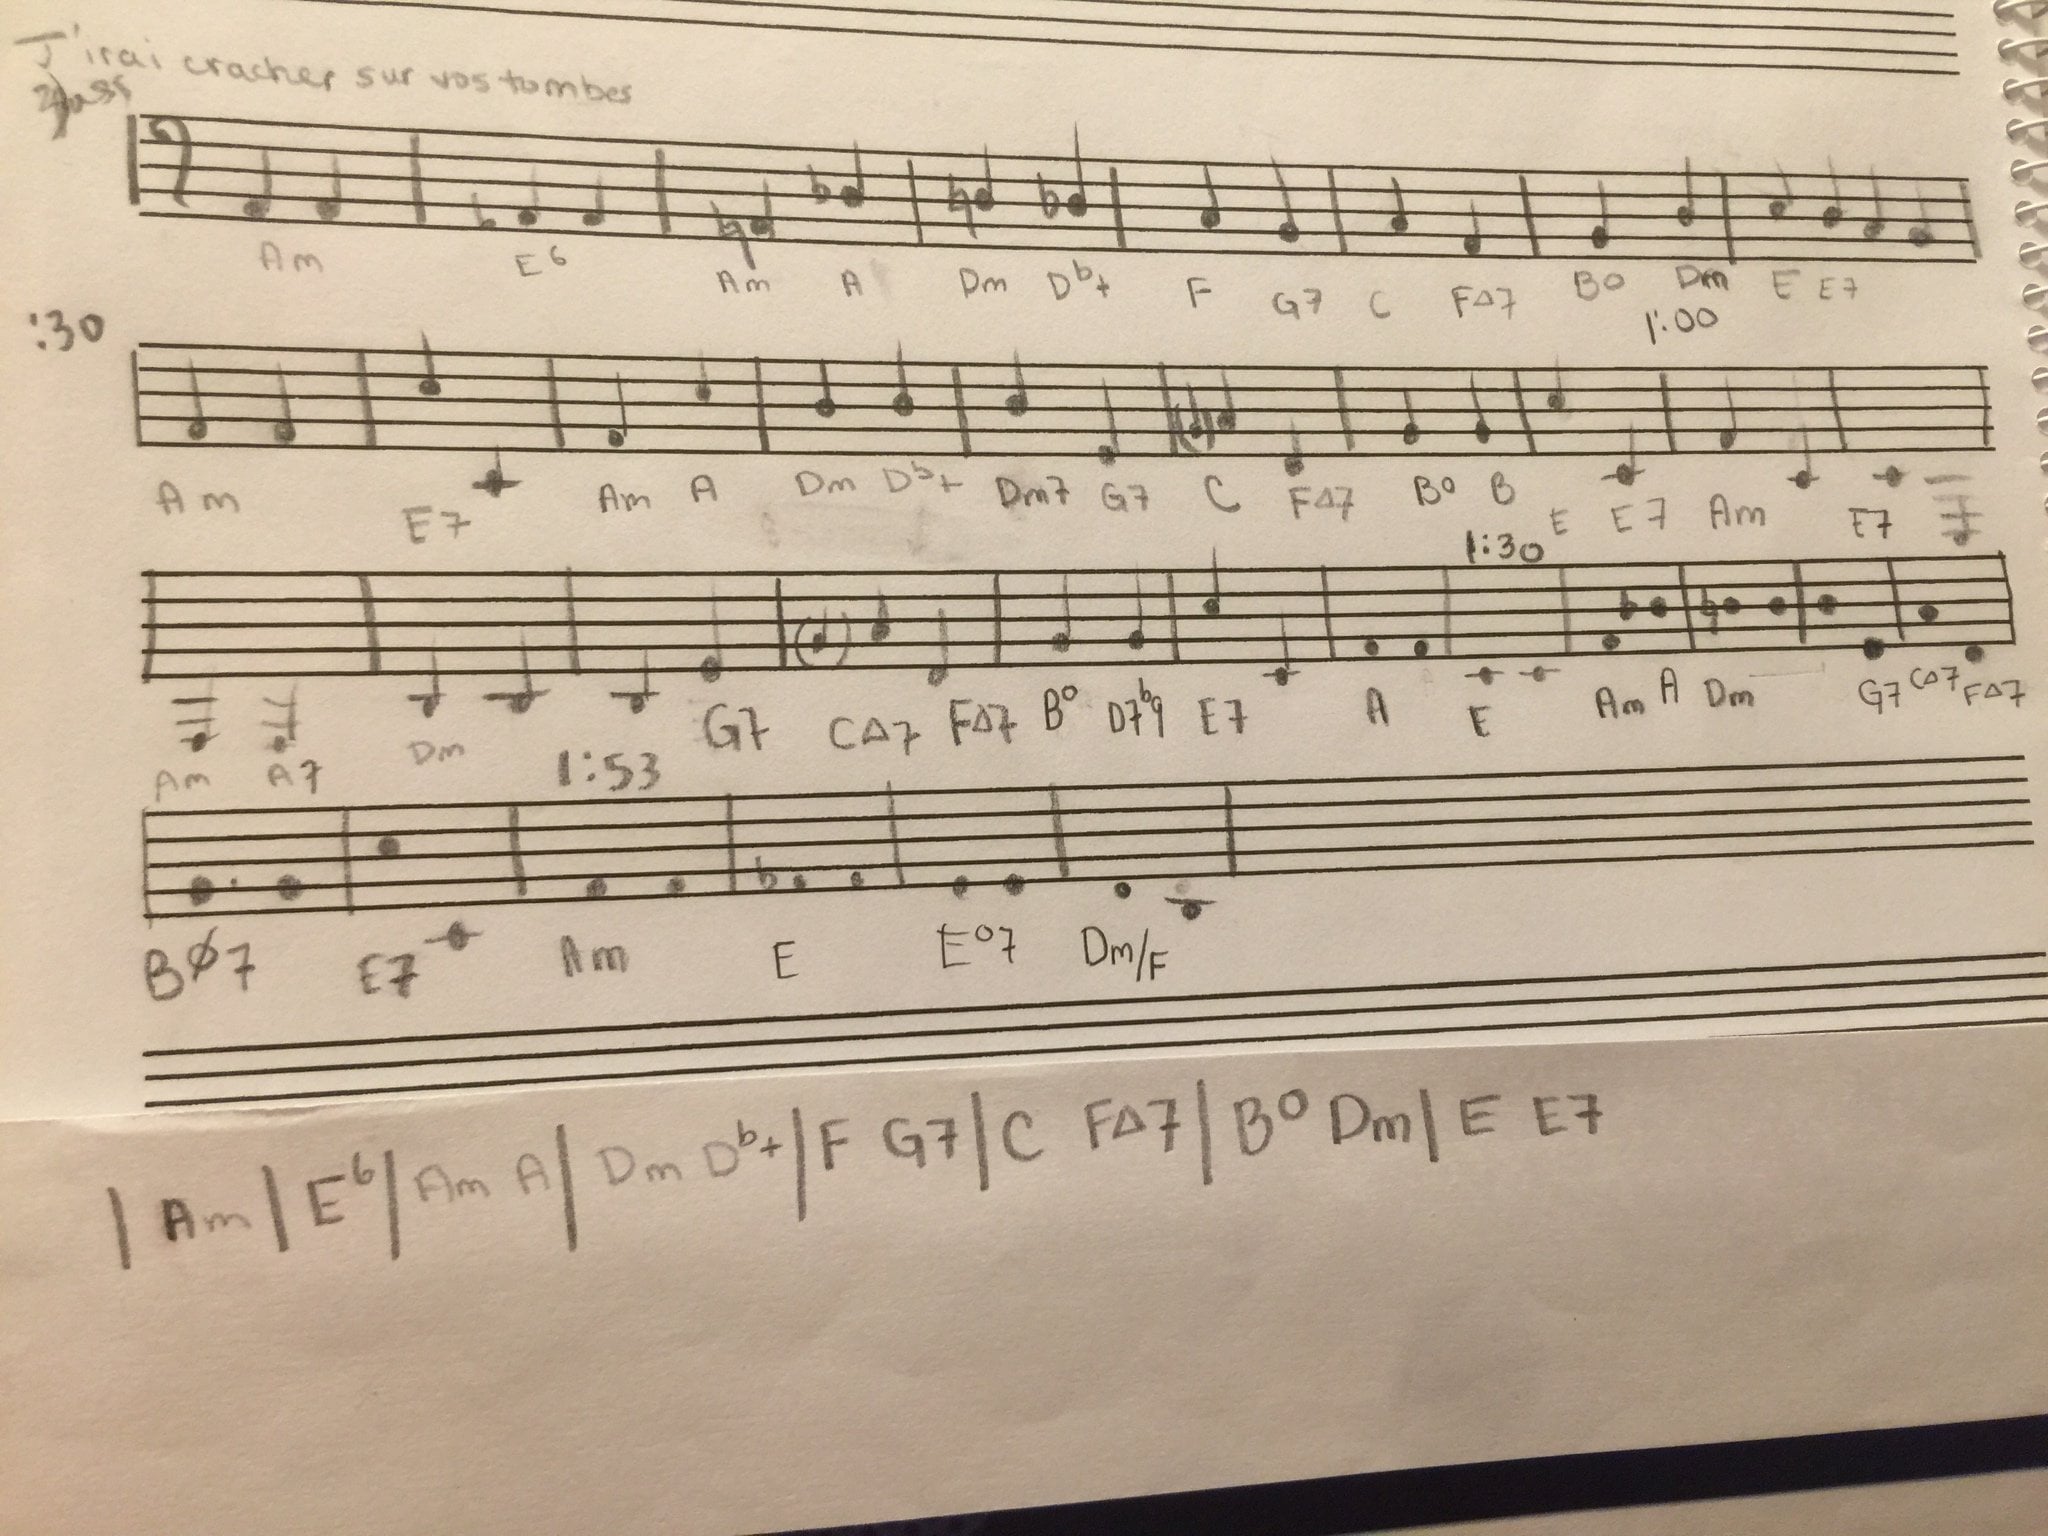 J'irai cracher sur vos tombes
Bass
Am E6 Am A Dm Db+ F G7 C FΔ7 Bo Dm E E7
:30 1:00
Am E7 Am A Dm Db+ Dm7 G7 C FΔ7 Bo B E E7 Am E7
1:30
Am A7 Dm G7 CΔ7 FΔ7 Bo D7b9 E7 A E Am A Dm G7 CΔ7 FΔ7
1:53
BØ7 E7 Am E Eo7 Dm/F
| Am | E6 | Am A | Dm Db+ | F G7 | C FΔ7 | Bo Dm | E E7